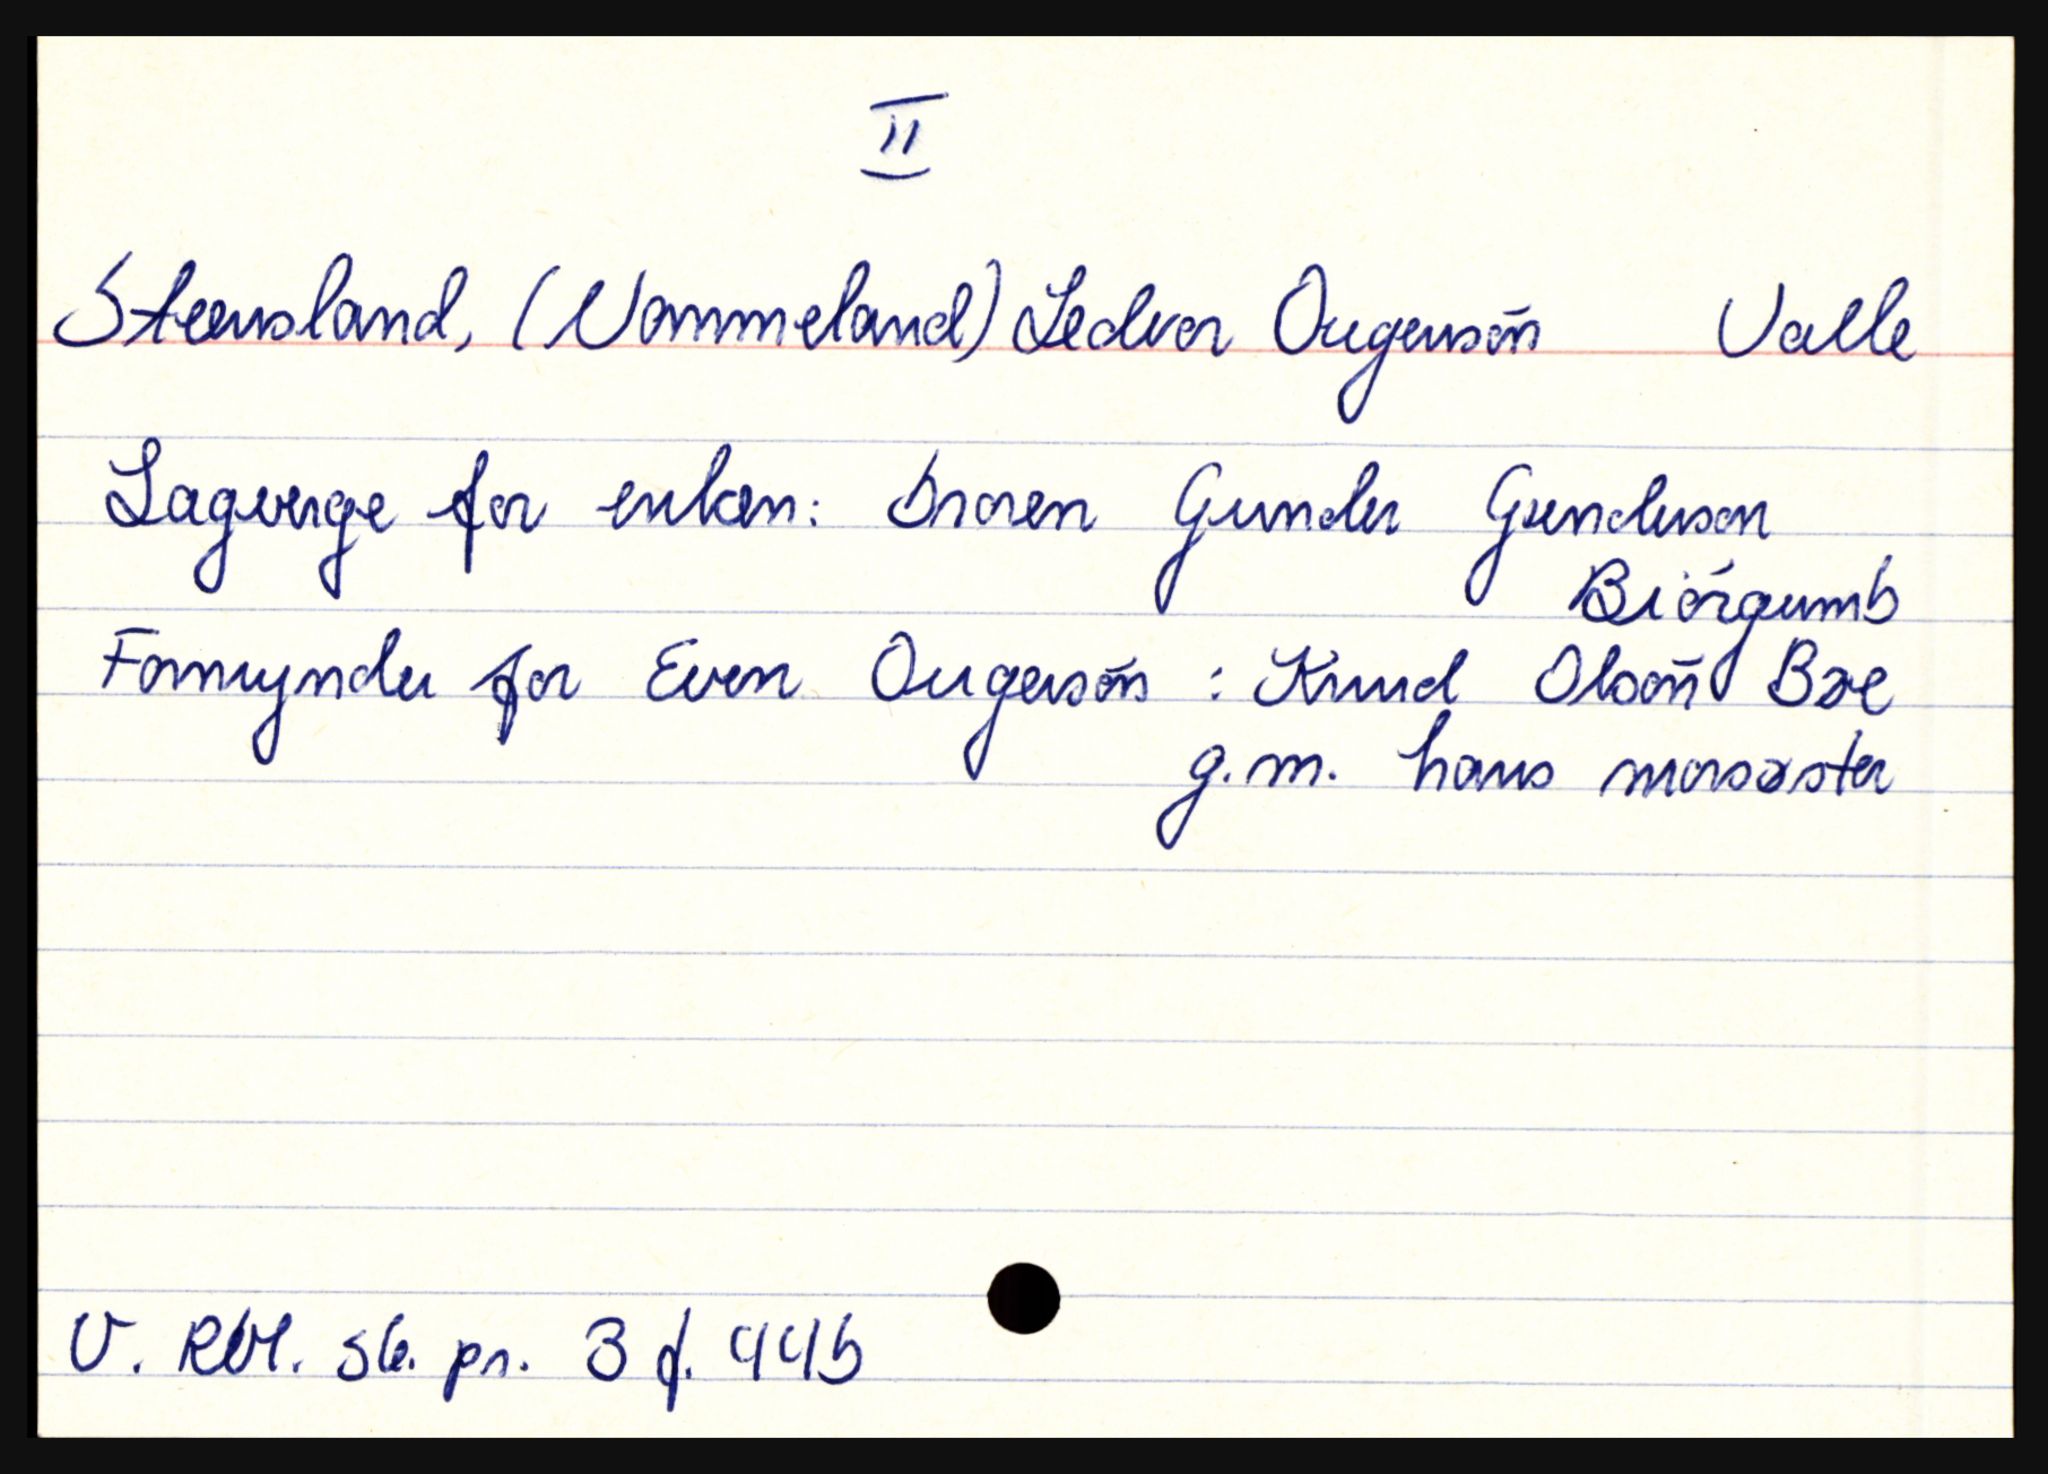 II
Steensland, (Nommeland) Ledvor Ougensøn Valle
Lagverge for enken: broren Gunder Gundersøn
Biørgumb
Formynder for Even Ougensøn : Knud Olsøn Bøe
g.m. hans morsøster
V. Rbl. sk. pr. 3 f. 44b